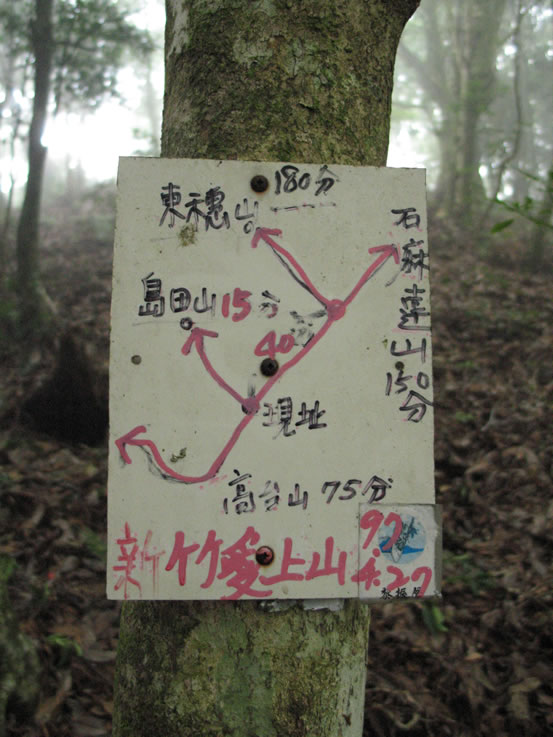 東穗山 180分
石麻達山 150分
島田山 15分
40
現址
高台山 75分
新竹愛上山
97
4.27